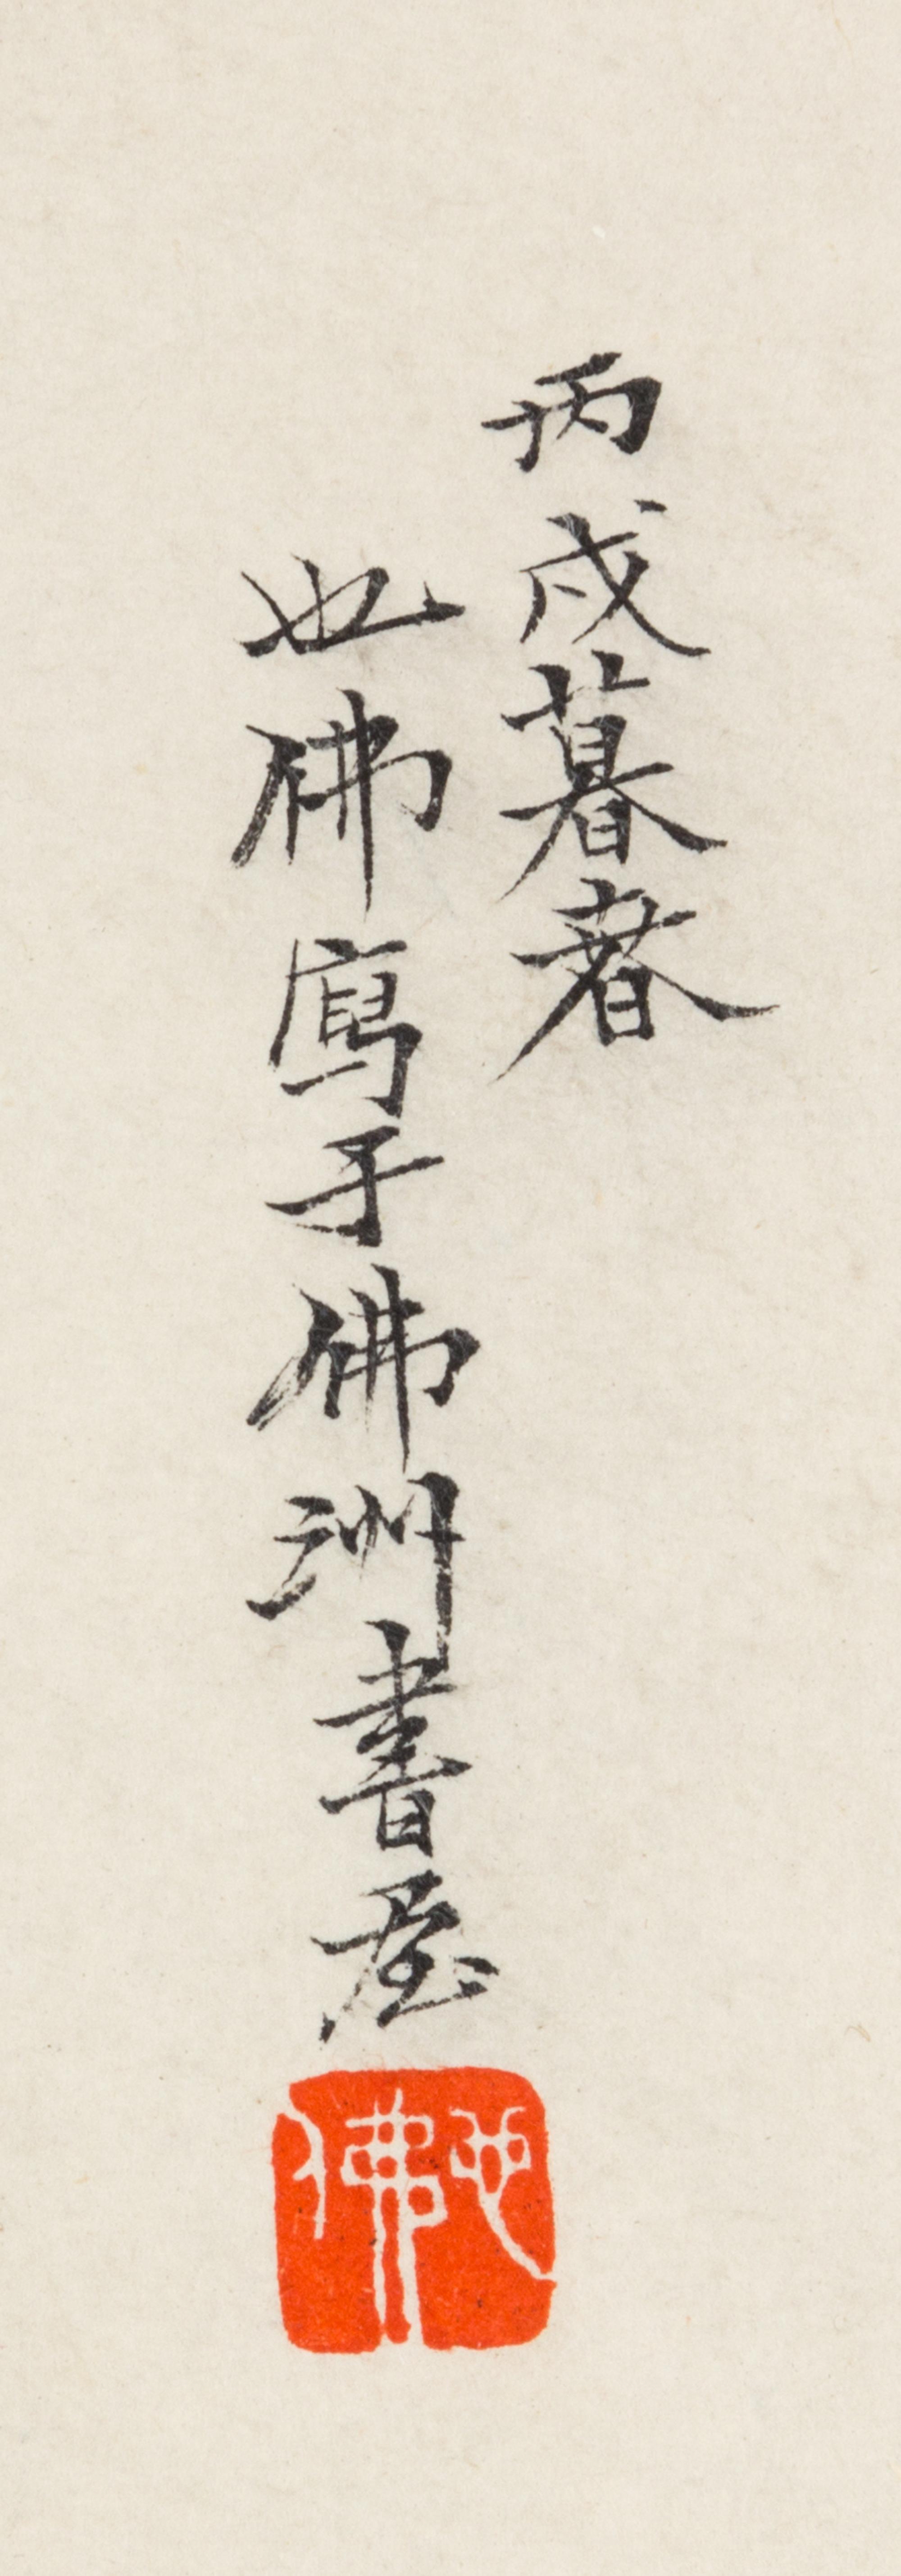 丙戌暮春
也佛寫于佛洲書屋
也佛